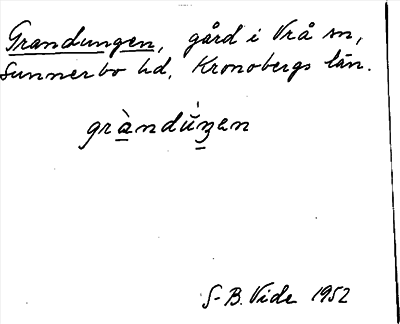 Grandungen, gård i Vrå sn,
Sunnerbo hd, Kronobergs län.
gràndúŋen
S-B. Vide 1952